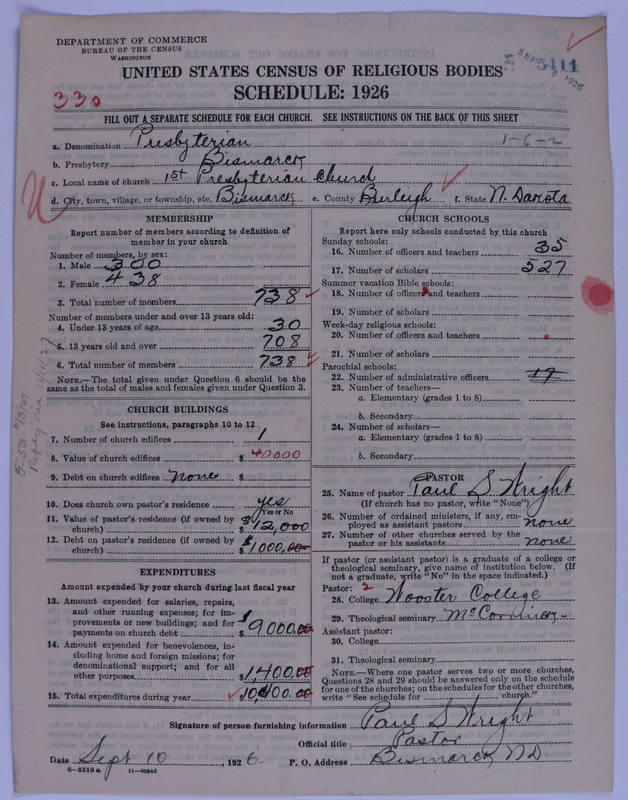 DEPARTMENT OF COMMERCE
BUREAU OF THE CENSUS
WASHINGTON
5411
SEP 1926
UNITED STATES CENSUS OF RELIGIOUS BODIES
SCHEDULE: 1926
330
FILL OUT A SEPARATE SCHEDULE FOR EACH CHURCH. SEE INSTRUCTIONS ON THE BACK OF THIS SHEET
a. Denomination Presbyterian 1-6-2
b. Presbytery Bismarck
c. Local name of church 1st Presbyterian Church
d. City, town, village, or township, etc. Bismarck e. County Burleigh f. State N. Dakota
MEMBERSHIP
Report number of members according to definition of
member in your church
Number of members, by sex:
1. Male 300
2. Female 438
3. Total number of members 738
Number of members under and over 13 years old:
4. Under 13 years of age 30
5. 13 years old and over 708
6. Total number of members 738
NOTE.—The total given under Question 6 should be
same as the total of males and females given under Question 3.
CHURCH BUILDINGS
See instructions, paragraphs 10 to 12
7. Number of church edifices 1
8. Value of church edifices $ 40000
9. Debt on church edifices none $
10. Does church own pastor's residence yes
Yes or No
11. Value of pastor's residence (if owned by
church) $ $12,000
12. Debt on pastor's residence (if owned by
church) $ $1000.00
EXPENDITURES
Amount expended by your church during last fiscal year
13. Amount expended for salaries, repairs,
and other running expenses; for im-
provements or new buildings; and for
payments on church debt $ $9000.00
14. Amount expended for benevolences, in-
cluding home and foreign missions; for
denominational support; and for all
other purposes $1,400.00
15. Total expenditures during year $10400.00
CHURCH SCHOOLS
Report here only schools conducted by this church
Sunday schools:
16. Number of officers and teachers 35
17. Number of scholars 527
Summer vacation Bible schools:
18. Number of officers and teachers
19. Number of scholars
Week-day religious schools:
20. Number of officers and teachers
21. Number of scholars
Parochial schools:
22. Number of administrative officers 17
23. Number of teachers—
a. Elementary (grades 1 to 8)
b. Secondary
24. Number of scholars—
a. Elementary (grades 1 to 8)
b. Secondary
PASTOR
25. Name of pastor Paul S Wright
(If church has no pastor, write "None")
26. Number of ordained ministers, if any, em-
ployed as assistant pastors none
27. Number of other churches served by the
pastor or his assistants none
If pastor (or assistant pastor) is a graduate of a college or
theological seminary, give name of institution below. (If
not a graduate, write "No" in the space indicated.)
Pastor: 2
28. College Wooster College
29. Theological seminary McCormick
Assistant pastor:
30. College
31. Theological seminary
NOTE.—Where one pastor serves two or more churches,
Questions 28 and 29 should be answered only on the schedule
for one of the churches; on the schedules for the other churches,
write "See schedule for church."
Signature of person furnishing information Paul S Wright
Official title Pastor
Date Sept 10, 1926 P. O. Address Bismarck ND
8—5518a